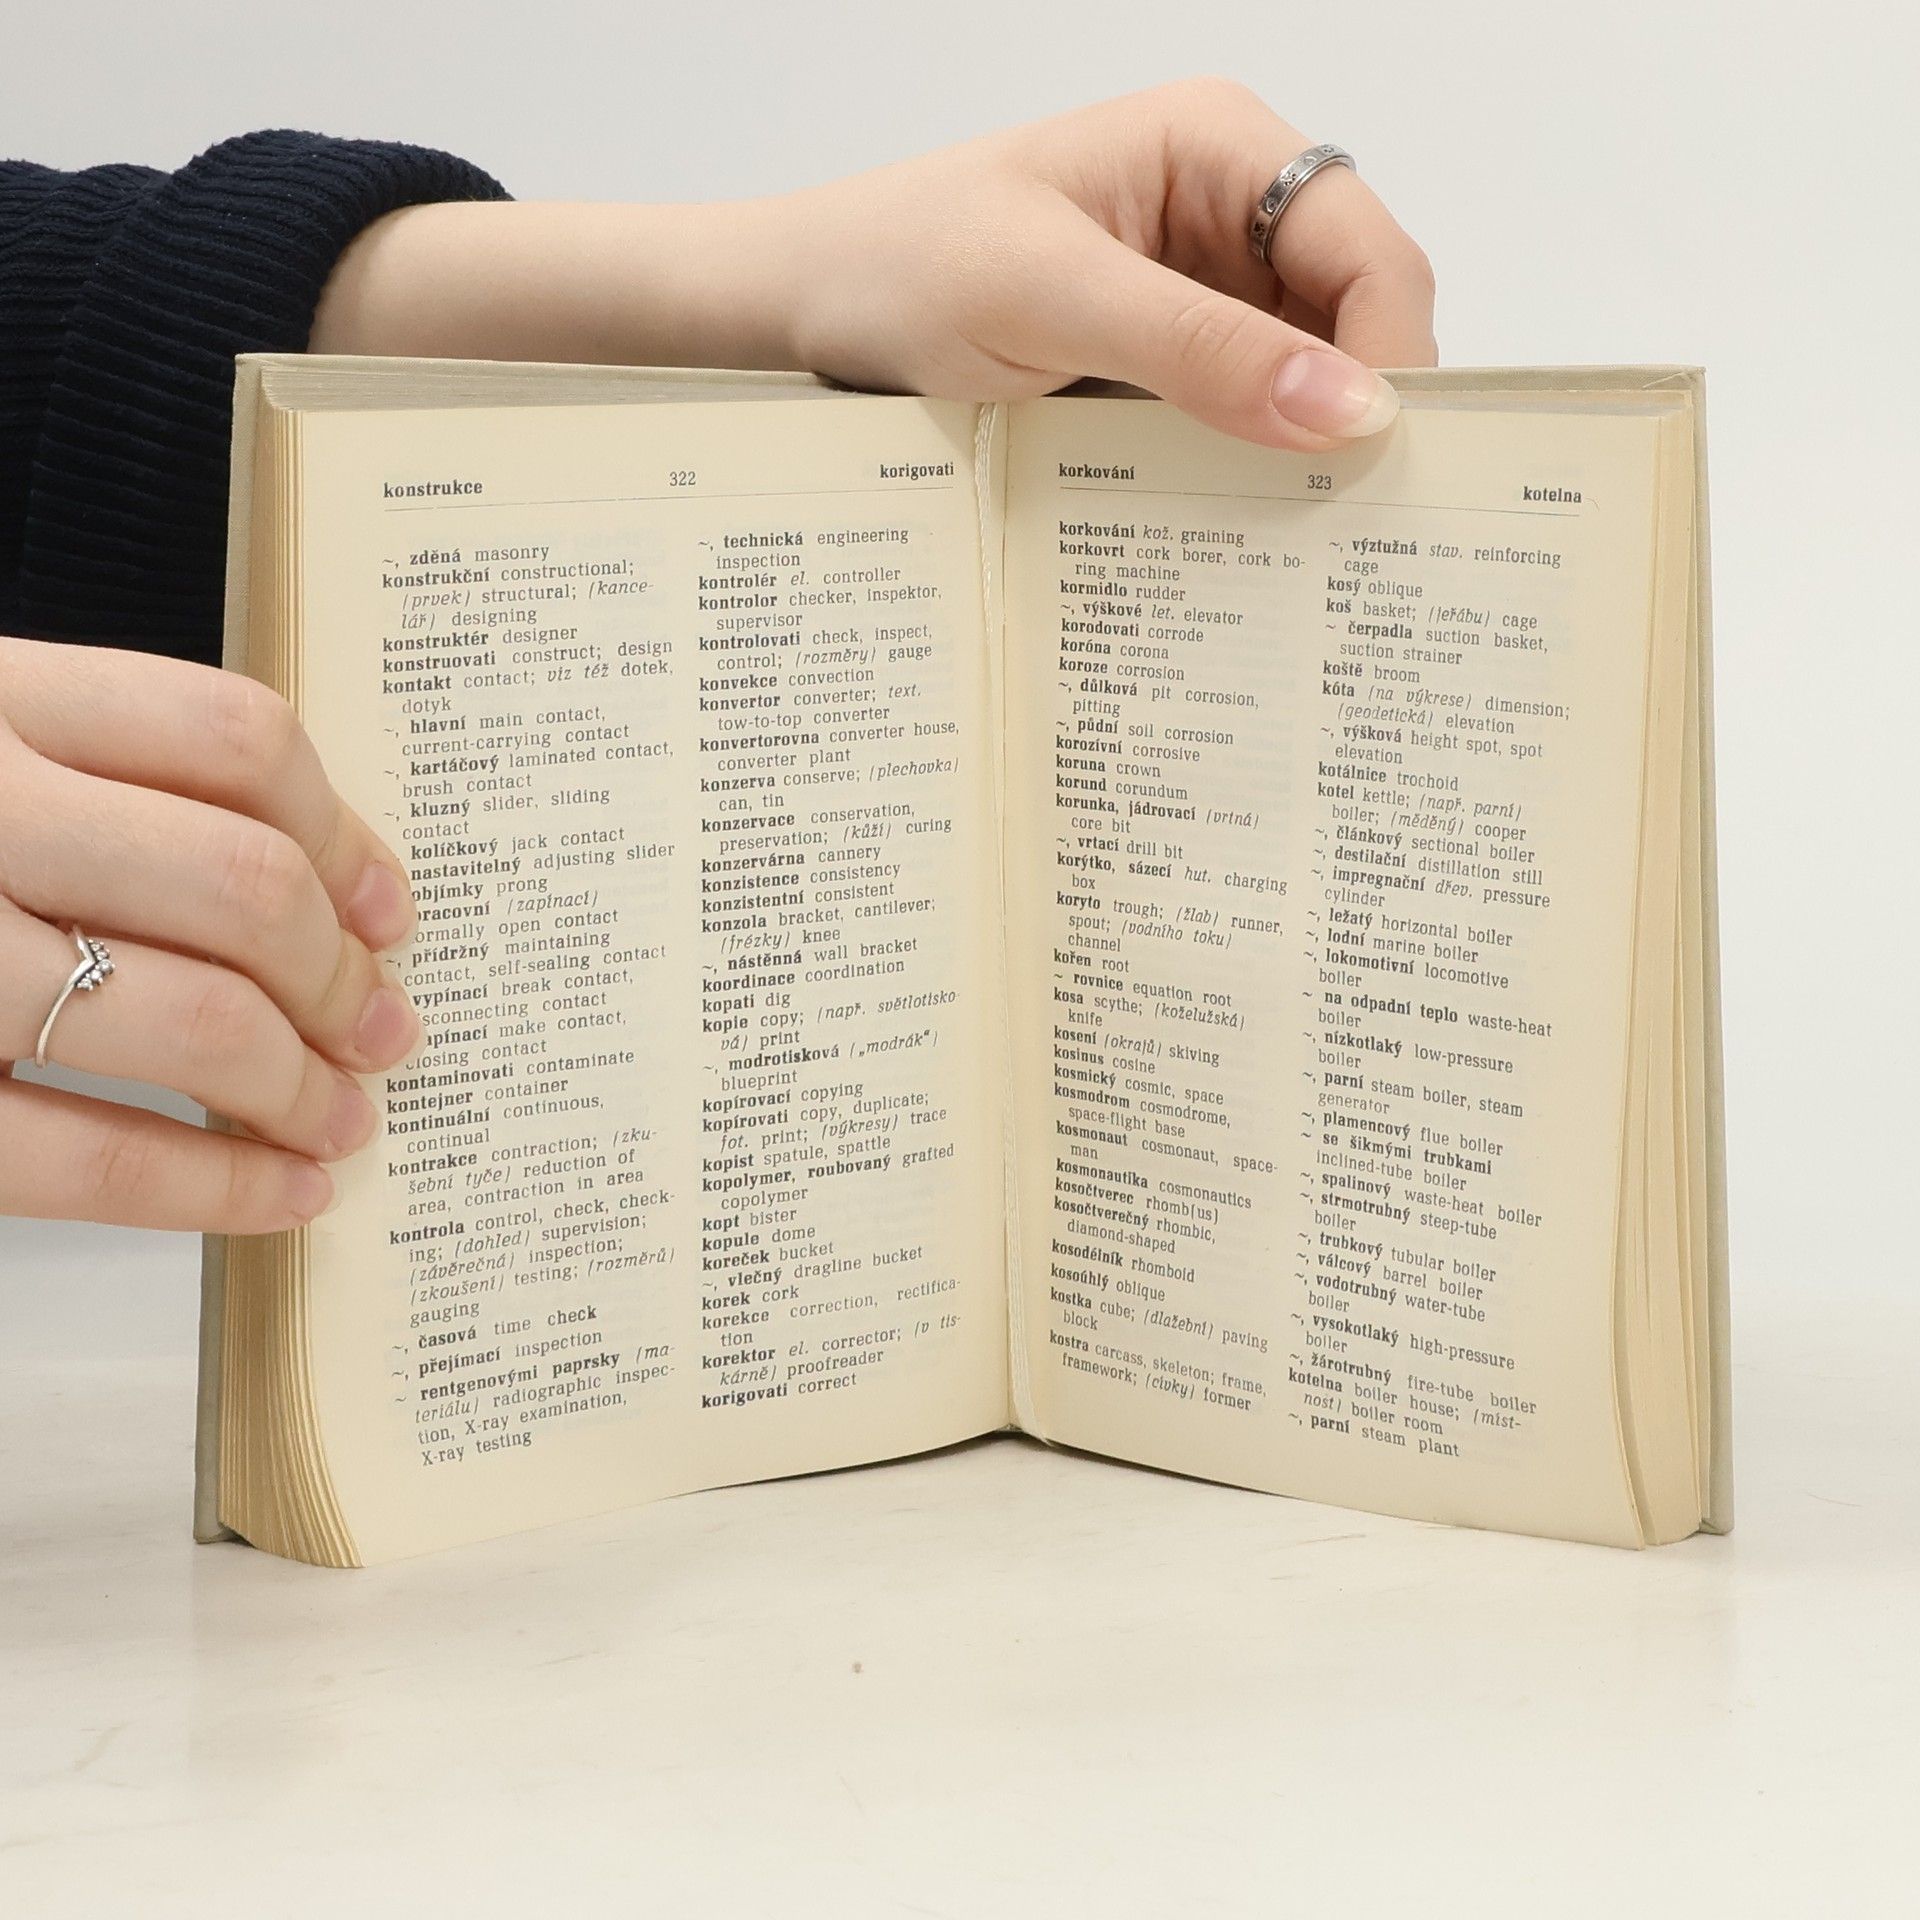 konstrukce 322 korigovati
~, zděná masonry
konstrukční constructional;
(prvek) structural; (kance-
lář) designing
konstruktér designer
konstruovati construct; design
kontakt contact; viz též dotek,
dotyk
~, hlavní main contact,
current-carrying contact
~, kartáčový laminated contact,
brush contact
~, kluzný slider, sliding
contact
kolíčkový jack contact
nastavitelný adjusting slider
objímky prong
pracovní (zapínací)
normally open contact
~, přídržný maintaining
contact, self-sealing contact
vypínací break contact,
disconnecting contact
zapínací make contact,
closing contact
kontaminovati contaminate
kontejner container
kontinuální continuous,
continual
kontrakce contraction; (zku-
šební tyče) reduction of
area, contraction in area
kontrola control, check, check-
ing; (dohled) supervision;
(závěrečná) inspection;
(zkoušení) testing; (rozměrů)
gauging
~, časová time check
~, přejímací inspection
~ rentgenovými paprsky (ma-
teriálu) radiographic inspec-
tion, X-ray examination,
X-ray testing
~, technická engineering
inspection
kontrolér el. controller
kontrolor checker, inspektor,
supervisor
kontrolovati check, inspect,
control; (rozměry) gauge
konvekce convection
konvertor converter; text.
tow-to-top converter
konvertorovna converter house,
converter plant
konzerva conserve; (plechovka)
can, tin
konzervace conservation,
preservation; (kůží) curing
konzervárna cannery
konzistence consistency
konzistentní consistent
konzola bracket, cantilever;
(frézky) knee
~, nástěnná wall bracket
koordinace coordination
kopati dig
kopie copy; (např. světlotisko-
vá) print
~, modrotisková („modrák“)
blueprint
kopírovací copying
kopírovati copy, duplicate;
fot. print; (výkresy) trace
kopist spatule, spattle
kopolymer, roubovaný grafted
copolymer
kopt bister
kopule dome
koreček bucket
~, vlečný dragline bucket
korek cork
korekce correction, rectifica-
tion
korektor el. corrector; (v tis-
kárně) proofreader
korigovati correct
korkování 323 kotelna
korkování kož. graining
korkovrt cork borer, cork bo-
ring machine
kormidlo rudder
~, výškové let. elevator
korodovati corrode
koróna corona
koroze corrosion
~, důlková pit corrosion,
pitting
~, půdní soil corrosion
korozívní corrosive
koruna crown
korund corundum
korunka, jádrovací (vrtná)
core bit
~, vrtací drill bit
korýtko, sázecí hut. charging
box
koryto trough; (žlab) runner,
spout; (vodního toku)
channel
kořen root
~ rovnice equation root
kosa scythe; (koželužská)
knife
kosení (okrajů) skiving
kosinus cosine
kosmický cosmic, space
kosmodrom cosmodrome,
space-flight base
kosmonaut cosmonaut, space-
man
kosmonautika cosmonautics
kosočtverec rhomb(us)
kosočtverečný rhombic,
diamond-shaped
kosodélník rhomboid
kosoúhlý oblique
kostka cube; (dlažební) paving
block
kostra carcass, skeleton; frame,
framework; (cívky) former
~, výztužná stav. reinforcing
cage
kosý oblique
koš basket; (jeřábu) cage
~ čerpadla suction basket,
suction strainer
koště broom
kóta (na výkrese) dimension;
(geodetická) elevation
~, výšková height spot, spot
elevation
kotálnice trochoid
kotel kettle; (např. parní)
boiler; (měděný) cooper
~, článkový sectional boiler
~, destilační distillation still
~, impregnační dřev. pressure
cylinder
~, ležatý horizontal boiler
~, lodní marine boiler
~, lokomotivní locomotive
boiler
~ na odpadní teplo waste-heat
boiler
~, nízkotlaký low-pressure
boiler
~, parní steam boiler, steam
generator
~, plamencový flue boiler
~ se šikmými trubkami
inclined-tube boiler
~, spalinový waste-heat boiler
~, strmotrubný steep-tube
boiler
~, trubkový tubular boiler
~, válcový barrel boiler
~, vodotrubný water-tube
boiler
~, vysokotlaký high-pressure
boiler
~, žárotrubný fire-tube boiler
kotelna boiler house; (míst-
nost) boiler room
~, parní steam plant